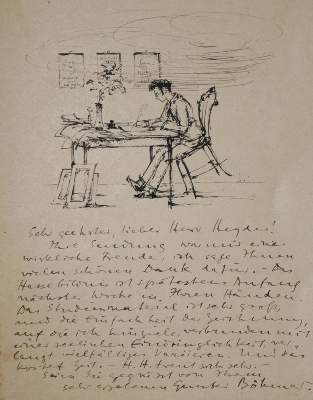 Sehr geehrter, lieber Herr Heyde!
Ihre Sendung war mir eine
wirkliche Freude, ich sage Ihnen
vielen schönen Dank dafür. - Das
ist spätestens Anfang
nächster Woche in Ihren Händen.
Das ist sehr groß
und die Einfachheit der Zeichnung,
auf die ich hinziele, verbunden mit
einer seelischen Eindringlichkeit ver-
langt vielfältiges Variieren und das
kostet Zeit. - H. H. freut sich sehr. -
Seien Sie gegrüsst von Ihrem
sehr ergebenen Gunter Böhmer.